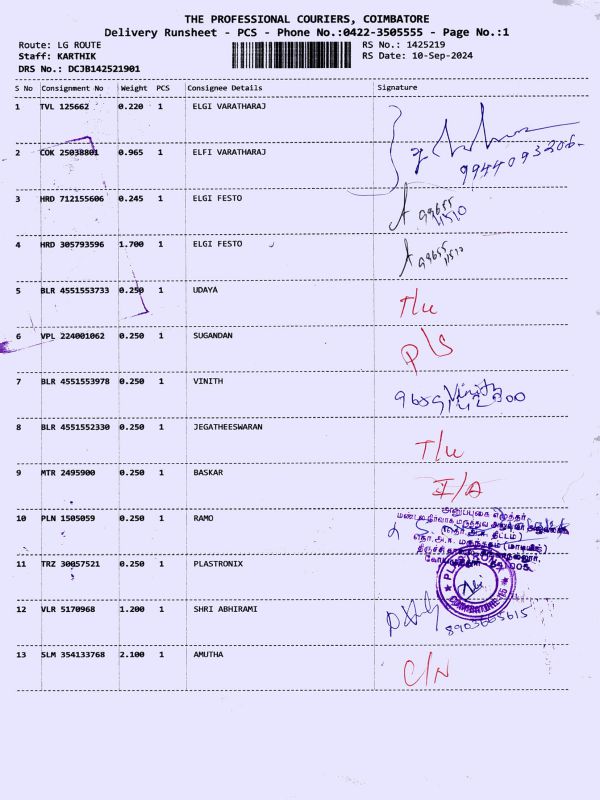 THE PROFESSIONAL COURIERS, COIMBATORE
Delivery Runsheet - PCS - Phone No.:0422-3505555 - Page No.:1
Route: LG ROUTE RS No.: 1425219
Staff: KARTHIK RS Date: 10-Sep-2024
DRS No.: DCJB142521901
S No Consignment No Weight PCS Consignee Details Signature
1 TVL 125662 0.220 1 ELGI VARATHARAJ
2 COK 25038801 0.965 1 ELFI VARATHARAJ 9944093206-
3 HRD 712155606 0.245 1 ELGI FESTO 99655 11510
4 HRD 305793596 1.700 1 ELGI FESTO 99655 11510
5 BLR 4551553733 0.250 1 UDAYA T/u
6 VPL 224001062 0.250 1 SUGANDAN P/S
7 BLR 4551553978 0.250 1 VINITH Vinith
8 BLR 4551552330 0.250 1 JEGATHEESWARAN T/u
9 MTR 2495900 0.250 1 BASKAR I/A
10 PLN 1505059 0.250 1 RAMO
11 TRZ 30057521 0.250 1 PLASTRONIX
12 VLR 5170968 1.200 1 SHRI ABHIRAMI 8903605615
COIMBATORE
13 SLM 354133768 2.100 1 AMUTHA C/N